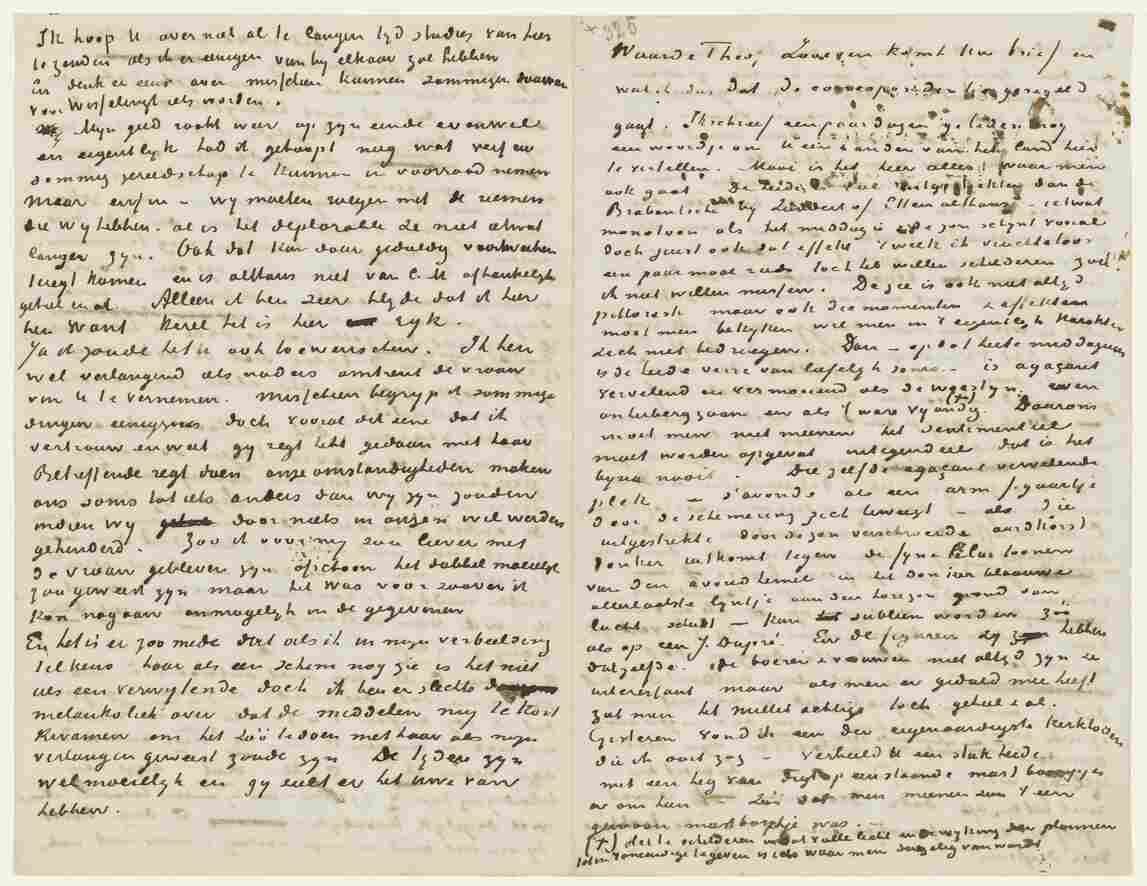 Ik hoop U over niet al te langen tyd studies van hier
te zenden als ik er eenigen van by elkaar zal hebben
en denk er eens over misschien kunnen sommigen daarvan
voor Wisselingh iets worden.
Myn geld raakt weer op zyn einde evenwel
en eigentlyk had ik gehoopt nog wat verf en
sommig gereedschap te kunnen in voorraad nemen
maar enfin – wy moeten roeijen met de riemen
die wy hebben. al is het deplorable ze niet ietwat
langer zyn. Ook dat kan door geduldig voortwerken
teregt komen en is althans niet van C.M. afhankelyk
geheel en al. Alleen ik ben zeer blyde dat ik hier
ben Want kerel het is hier zyk.
Ja ik zoude het U ook toewenschen. Ik ben
wel verlangend iets naders omtrent de vrouw
van U te vernemen. Misschien begryp ik sommige
dingen eenigzins doch vooral dit eene dat ik
vertrouw en weet gy regt hebt gedaan met haar
Betreffende regt doen onze omstandigheden maken
ons soms tot iets anders dan wy zyn zouden
indien wy door niets in onzen wil werden
gehinderd. Zoo ik voor my zou liever met
de vrouw gebleven zyn ofschoon het dubbel moeielyk
zou geweest zyn maar het was voor zoover ik
kon nagaan onmogelyk in de gegeven
En het is er zoo mede dat als ik in myn verbeelding
telkens haar als een schim nog zie is het niet
als een verwytende doch ik ben er slechts
melankoliek over dat de middelen my te kort
kwamen om het zóó te doen met haar als myn
verlangen geweest zoude zyn De tyden zyn
wel moeielyk en gy zult er het Uwe van
hebben.
325
Waarde Theo, Zooeven komt Uw brief en
wat ik dus dat de correspondentie geregeld
gaat. Ik schreef een paar dagen geleden nog
een woordje om U een & ander van het land hier
te vertellen. Mooi is het hier alles, waar men
ook gaat De heide is veel uitgestrekter dan de
Brabantsche by Zundert of Etten althans – ietwat
monotoon als het middag is & de zon schynt vooral
doch juist ook dat effekt 't welk ik vruchteloos
een paar maal reeds toch heb willen schilderen zou
ik niet willen missen. De zee is ook niet altyd
pittoresk maar ook die momenten & effekten
moet men bekyken wil men in 't eigentlyk karakter
zich niet bedriegen. Dan – op dat heete middaguur
is de heide verre van liefelyk soms – is agaçant
vervelend en vermoeiend als de woestyn, even
onherbergzaam en als 't ware vyandig (+) Daarom
moet men niet meenen het sentimenteel
moet worden opgevat integendeel dat is het
byna nooit. Die zelfde agaçant vervelende
plek – s'avonds als een arm figuurtje
door de schemering zich beweegt – als die
uitgestrekte door de zon verschroeide aardkorst
donker uitkomt tegen de fyne lilas toonen
van den avondhemel en het donker blaauwe
allerlaatste lyntje aan den horizon grond van
lucht scheidt – kan subliem worden zoo
als op een J. Dupré En de figuren zy hebben
datzelfde. de boeren & vrouwen niet altyd zyn ze
interessant maar als men er geduld mee heeft
zal men het Milletachtige toch geheel & al.
Gisteren vond ik een der eigenaardigste kerkhoven
die ik ooit zag – verbeeld U een stuk heide
met een heg van digt op een staande mast boompjes
er om heen – zóó dat men meenen zou 't een
gewoon mastboschje was. –
(+) dit te schilderen in dat volle licht en de wyking der plannen